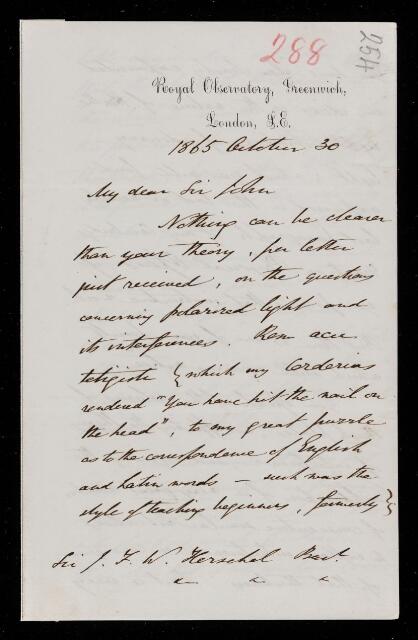 288
254
Royal Observatory, Greenwich,
London, S.E.
1865 October 30
My dear Sir John
Nothing can be clearer
than your theory, per letter
just received, on the questions
concerning polarized light and
its interferences. Rem acu
tetigisti {which my Corderius
rendered "You have hit the nail on
the head", to my great puzzle
as to the correspondence of English
and Latin words — such was the
style of teaching beginners, formerly}
Sir J. F. W. Herschel Bart.